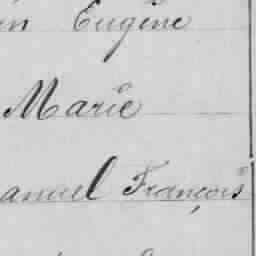 in Eugène
Marie
anuel François